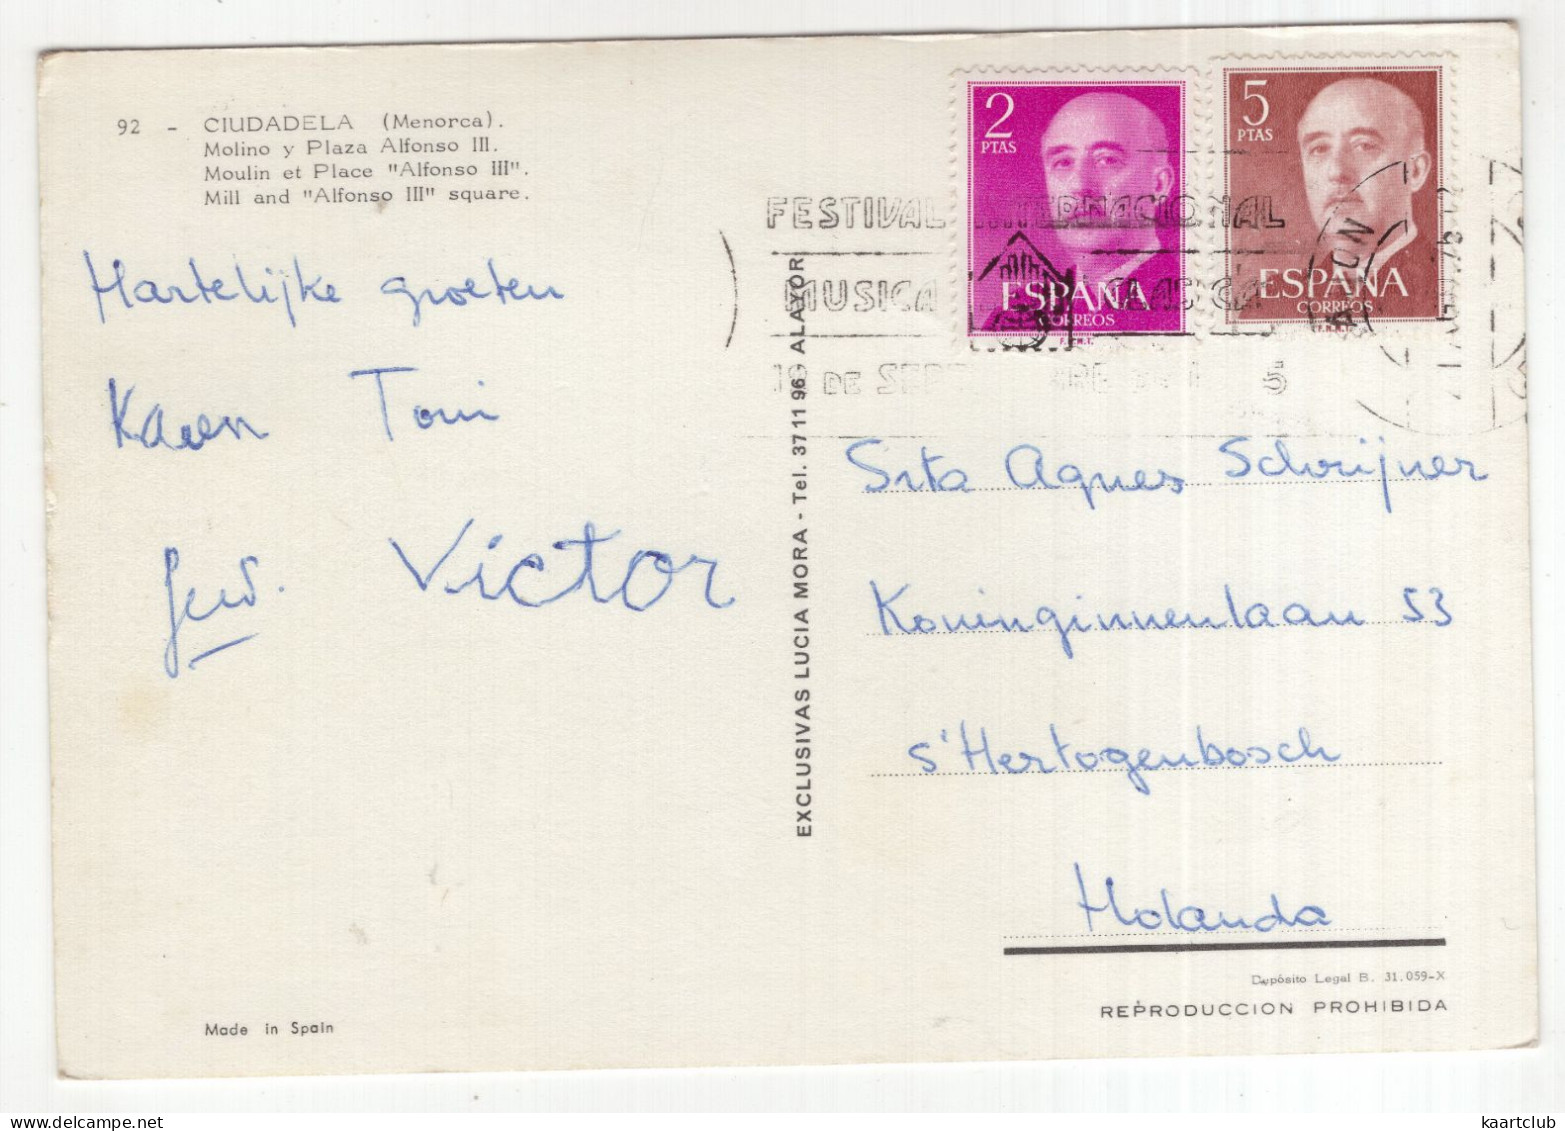 92 - CIUDADELA (Menorca).
Molino y Plaza Alfonso III.
Moulin et Place "Alfonso III".
Mill and "Alfonso III" square.
Hartelijke groeten
Karen Toni
Victor
Made in Spain
EXCLUSIVAS LUCIA MORA - Tel. 37 11 96 - ALAYOR
2
PTAS
ESPAÑA
CORREOS
F.N.M.T.
5
PTAS
ESPAÑA
CORREOS
F.N.M.T.
FESTIVAL INTERNACIONAL
MUSICA CLASICA
Srta Agnes Schrijner
Koninginnenlaan 53
s'Hertogenbosch
Holanda
Depósito Legal B. 31.059-X
REPRODUCCION PROHIBIDA
kaartclub